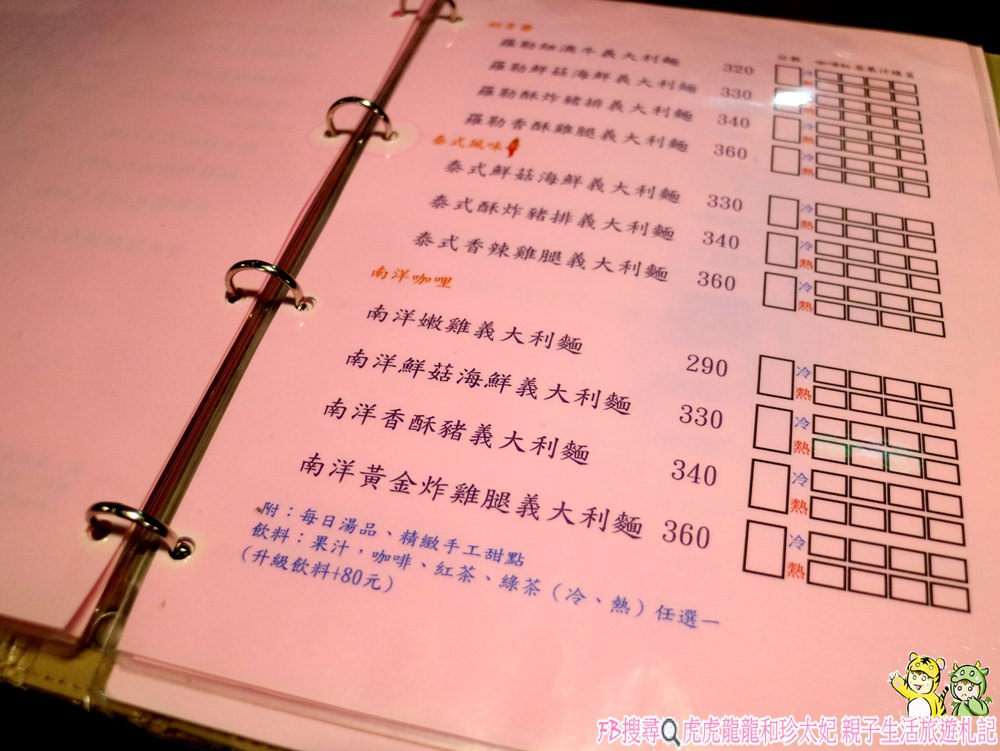 羅勒細澳牛義大利麵 320
羅勒鮮菇海鮮義大利麵 330
羅勒酥炸豬排義大利麵 340
羅勒香酥雞腿義大利麵 360
泰式風味
泰式鮮菇海鮮義大利麵 330
泰式酥炸豬排義大利麵 340
泰式香辣雞腿義大利麵 360
南洋咖哩
南洋嫩雞義大利麵 290
冷
熱
南洋鮮菇海鮮義大利麵 330
冷
熱
南洋香酥豬義大利麵 340
冷
熱
南洋黃金炸雞腿義大利麵 360
冷
熱
附：每日湯品、精緻手工甜點
飲料：果汁，咖啡、紅茶、綠茶（冷、熱）任選一
（升級飲料+80元）
FB搜尋 虎虎龍龍和珍太妃 親子生活旅遊札記